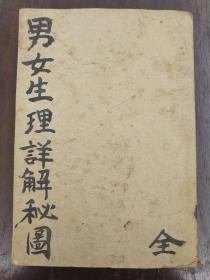 男女生理詳解秘圖
全